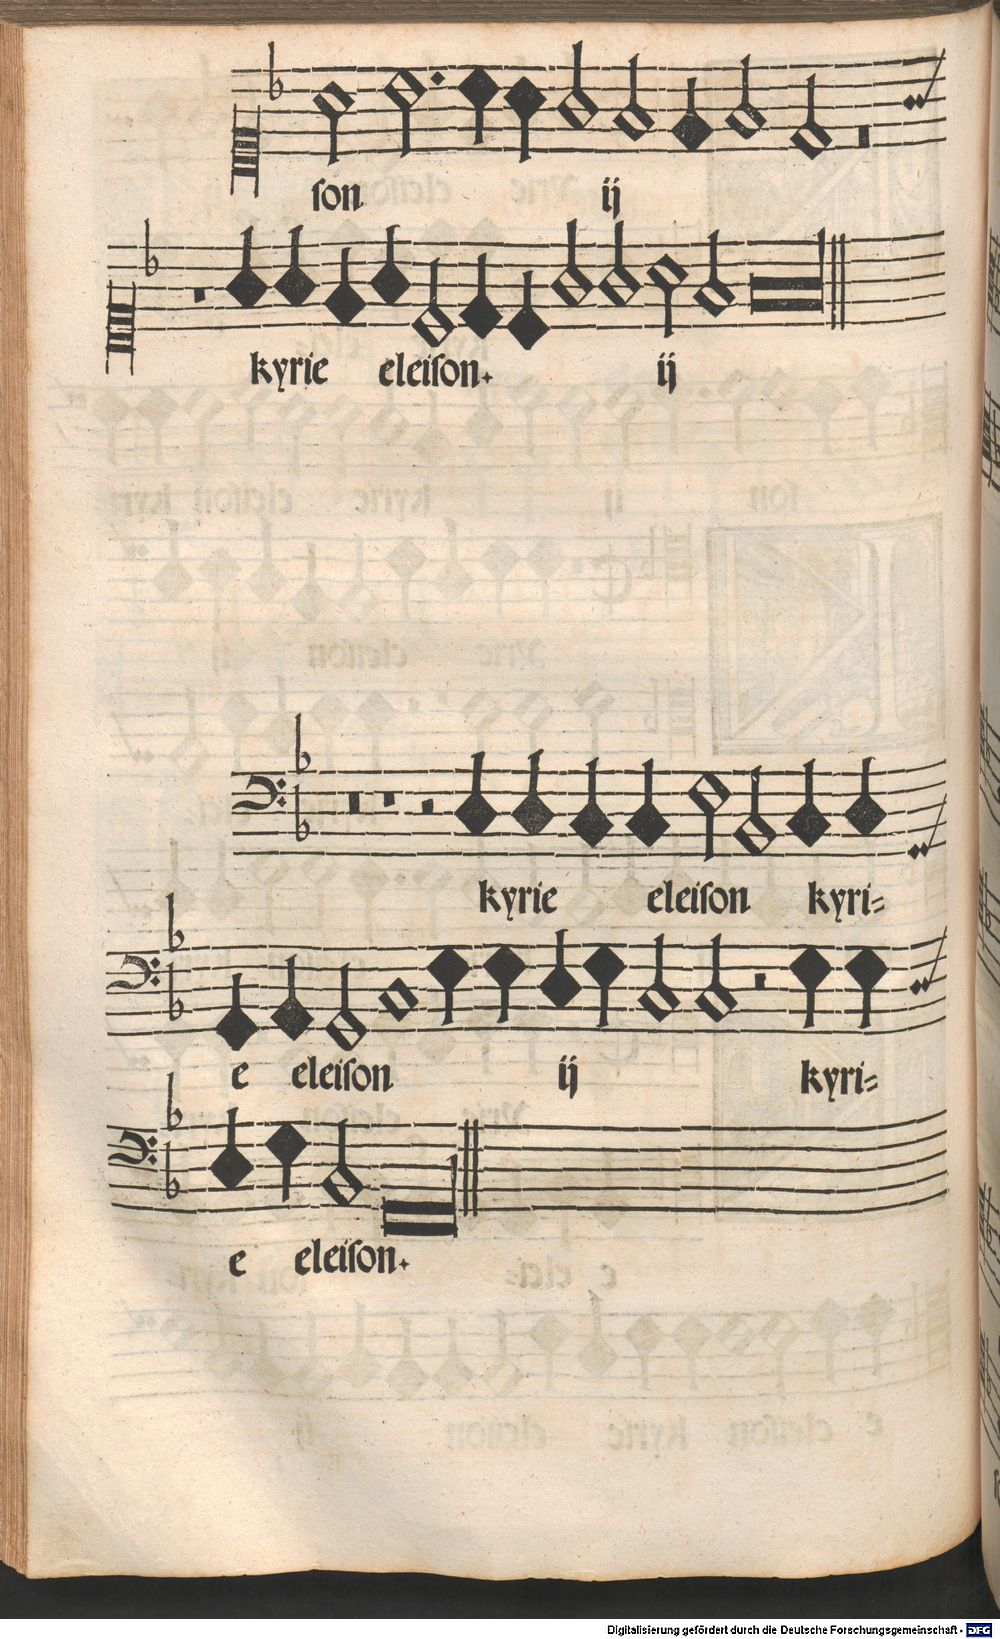 ſon ij
kyrie eleiſon. ij
kyrie eleiſon kyri=
e eleiſon ij kyri=
e eleiſon.
Digitalisierung gefördert durch die Deutsche Forschungsgemeinschaft - DFG